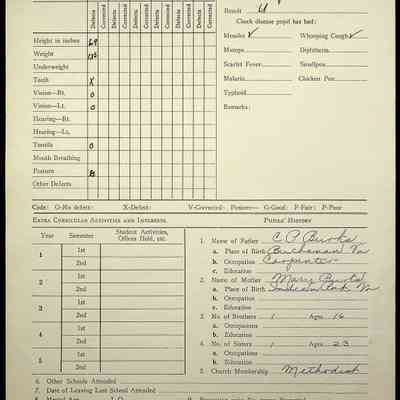 Defects Corrected Defects Corrected Defects Corrected Defects Corrected Defects Corrected Defects Corrected
Result
Check disease pupil has had:
Height in inches 69
Measles ✓ Whooping Cough ✓
Weight
Mumps Diphtheria
Underweight
Scarlet Fever Smallpox
Teeth X
Malaria Chicken Pox
Vision—Rt. 0
Typhoid
Vision—Lt. 0
Remarks:
Hearing—Rt.
Hearing—Lt.
Tonsils 0
Mouth Breathing
Posture
Other Defects
Code: O-No defect: X-Defect: V-Corrected: Posture— G-Good: F-Fair: P-Poor
Extra Curricular Activities and Interests.
Year Semester Student Activities, Offices Held, etc.
1 1st
2nd
2 1st
2nd
3 1st
2nd
4 1st
2nd
5 1st
2nd
Pupils' History
1. Name of Father C P Burks
a. Place of Birth Buchanan Va
b. Occupation Carpenter
c. Education
2. Name of Mother Mary Burks
a. Place of Birth Va
b. Occupation
c. Education
3. No of Brothers 1 Ages 16
a. Occupations
b. Education
4. No. of Sisters 1 Ages 23
a. Occupations
b. Education
5. Church Membership Methodist
6. Other Schools Attended
7. Date of Leaving Last School Attended